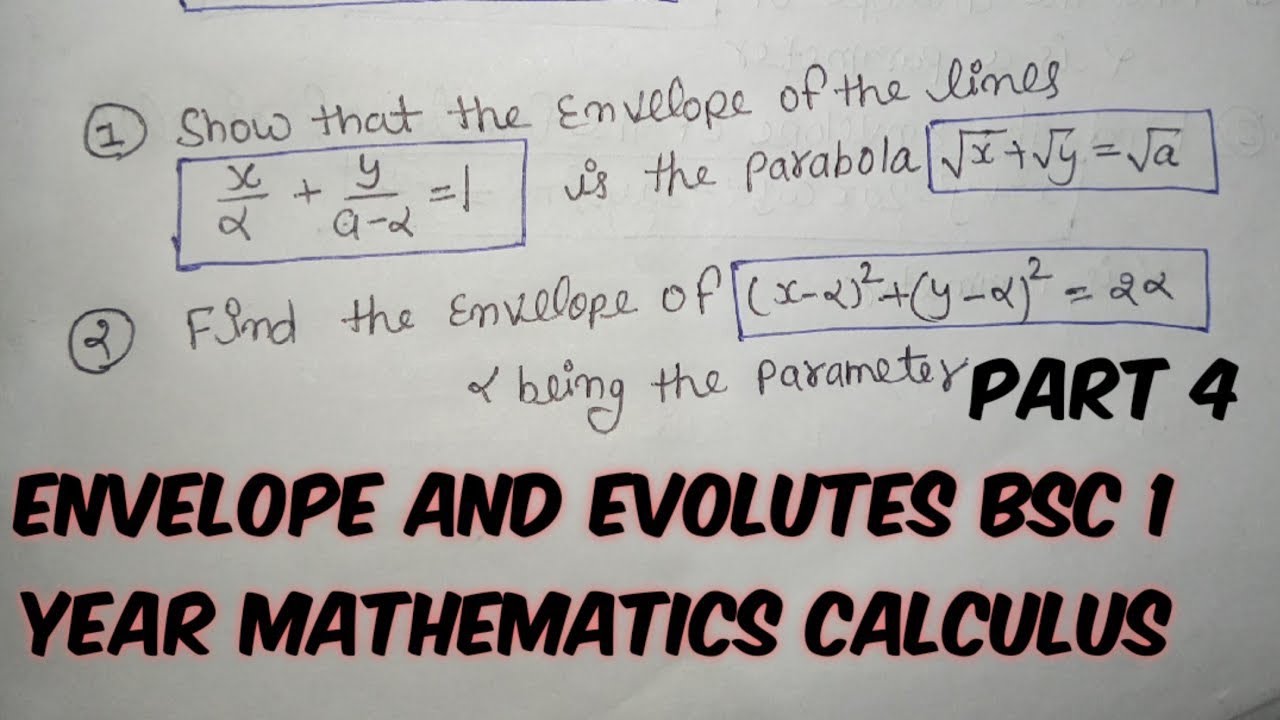 ① Show that the Envelope of the lines
x/α + y/a-α = 1 is the parabola √x + √y = √a
② Find the Envelope of (x-α)² + (y-α)² = 2α
α being the parameter
PART 4
ENVELOPE AND EVOLUTES BSC 1
YEAR MATHEMATICS CALCULUS